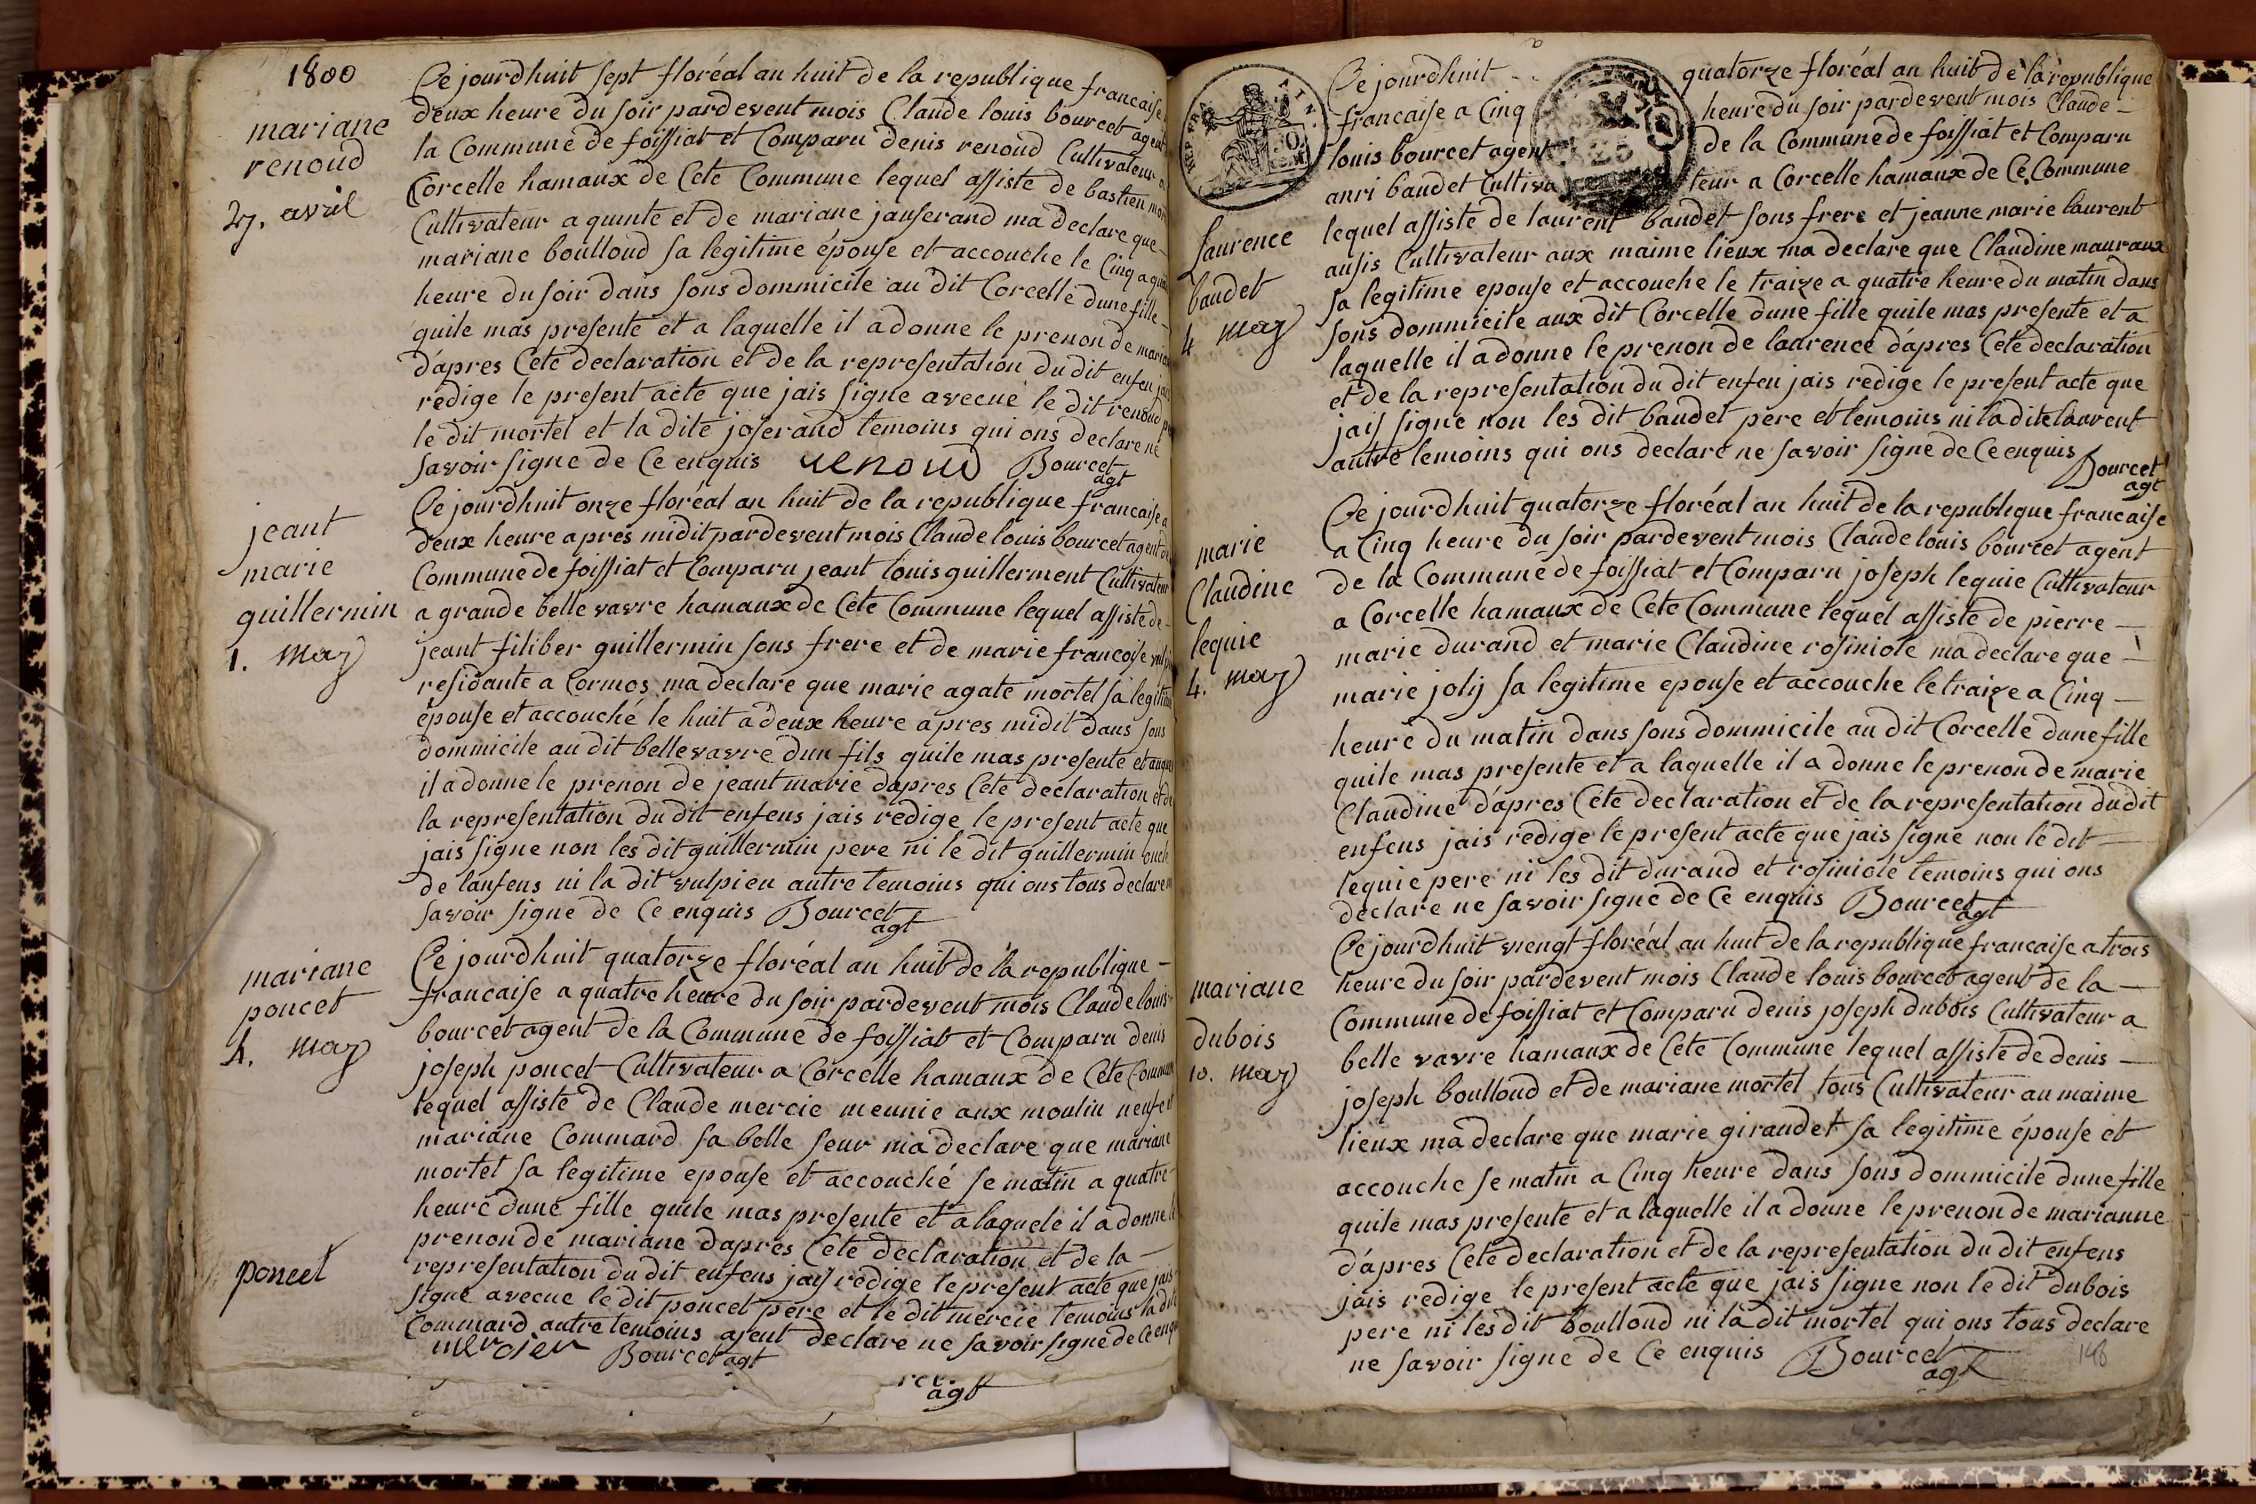 1800
mariane
renoud
27. avril
Ce jourdhuit sept floréal an huit de la republique francaise
deux heure du soir pardevent mois Claude louis bourcet agent
la Commune de foissiat et Comparu denis renoud Cultivateur a
Corcelle hamaux de Cete Commune lequel assiste de bastien
Cultivateur a quinte et de mariane janserand ma declare que
mariane boulloud sa legitime épouse et accouche le Cinq a
heure du soir dans sons dommicile au dit Corcelle dune fille
quile mas presente et a laquelle il a donne le prenon de
d'apres Cete declaration et de la representation du dit enfen
redige le present acte que jais signe avecue le dit renoud
le dit mortel et la dite joserand temoins qui ons declare ne
savoir signe de Ce enquis renoud Bourcet
agt
jeant
marie
guillermin
1. may
Ce jourdhuit onze floréal an huit de la republique francaise a
deux heure apres midit pardevent mois Claude louis bourcet agent
Commune de foissiat et Comparu jeant louis guillerment Cultivateur
a grande belle vavre hamaux de Cete Commune lequel assiste de
jeant filiber guillermin sons frere et de marie francoise
residante a Cormos ma declare que marie agate mortel sa
épouse et accouché le huit a deux heure apres midit dans sons
dommicile au dit belle vavre dun fils quile mas presente et
il a donne le prenon de jeant marie dapres Cete declaration et de
la representation du dit enfens jais redige le present acte que
jais signe non les dit guillermin pere ni le dit guillermin
de lanfens ni la dit vulpieu autre temoins qui ons tous declare
savoir signe de Ce enquis Bourcet
agt
mariane
poncet
4. may
Ce jourdhuit quatorze floréal an huit de la republique
francaise a quatre heure du soir pardevent mois Claude louis
bourcet agent de la Commune de foissiat et Comparu denis
joseph poncet Cultivateur a Corcelle hamaux de Cete
lequel assiste de Claude mercie meunie aux moulin neuf et
mariane Commard sa belle seur ma declare que mariane
mortel sa legitime epouse et accouché se matin a quatre
heure dune fille quile mas presente et a laquele il a donne
prenon de mariane dapres Cete declaration et de la
representation du dit enfens jais redige le present acte que jais
signe avecue le dit poncet pere et le dit mercie temoins la
Commard autre temoins ajent declare ne savoir signe de Ce
poncet
mercier Bourcet agt
agt
Ce jourdhuit quatorze floréal an huit de la republique
francaise a Cinq heure du soir pardevent mois Claude
louis bourcet agent de la Commune de foissiat et Comparu
anri baudet Cultivateur a Corcelle hamaux de Ce Commune
laurence
baudet
4 may
lequel assiste de laurent baudet sons frere et jeanne marie laurent
ausis Cultivateur aux maime lieux ma declare que Claudine mauraux
sa legitime epouse et accouche le traize a quatre heure du matin dans
sons dommicile aux dit Corcelle dune fille quile mas presente et a
laquelle il a donne le prenon de laurence d'apres Cete declaration
et de la representation du dit enfen jais redige le present acte que
jais signe non les dit baudet pere et temoins ni la dite laurent
autre temoins qui ons declare ne savoir signe de Ce enquis
Bourcet
agt
marie
Claudine
lequie
4. may
Ce jourdhuit quatorze floréal an huit de la republique francaise
a Cinq heure du soir pardevent mois Claude louis bourcet agent
de la Commune de foissiat et Comparu joseph lequie Cultivateur
a Corcelle hamaux de Cete Commune lequel assiste de pierre
marie durand et marie Claudine rosiniole ma declare que
marie jolij sa legitime epouse et accouche le traize a Cinq
heure du matin dans sons dommicile au dit Corcelle dune fille
quile mas presente et a laquelle il a donne le prenon de marie
Claudine d'apres Cete declaration et de la representation du dit
enfens jais redige le present acte que jais signe non le dit
lequie pere ni les dit durand et rosiniole temoins qui ons
declare ne savoir signe de Ce enquis Bourcet
agt
mariane
dubois
10. may
Ce jourdhuit viengt floréal an huit de la republique francaise a trois
heure du soir pardevent mois Claude louis bourcet agent de la
Commune de foissiat et Comparu denis joseph dubois Cultivateur a
belle vavre hamaux de Cete Commune lequel assiste de denis
joseph boulloud et de mariane mortel tous Cultivateur au maime
lieux ma declare que marie giraudet sa legitime épouse et
accouche se matin a Cinq heure dans sons dommicile dune fille
quile mas presente et a laquelle il a donne le prenon de marianne
d'apres Cete declaration et de la representation du dit enfens
jais redige le present acte que jais signe non le dit dubois
pere ni les dit boulloud ni la dit mortel qui ons tous declare
ne savoir signe de Ce enquis Bourcet
agt
148